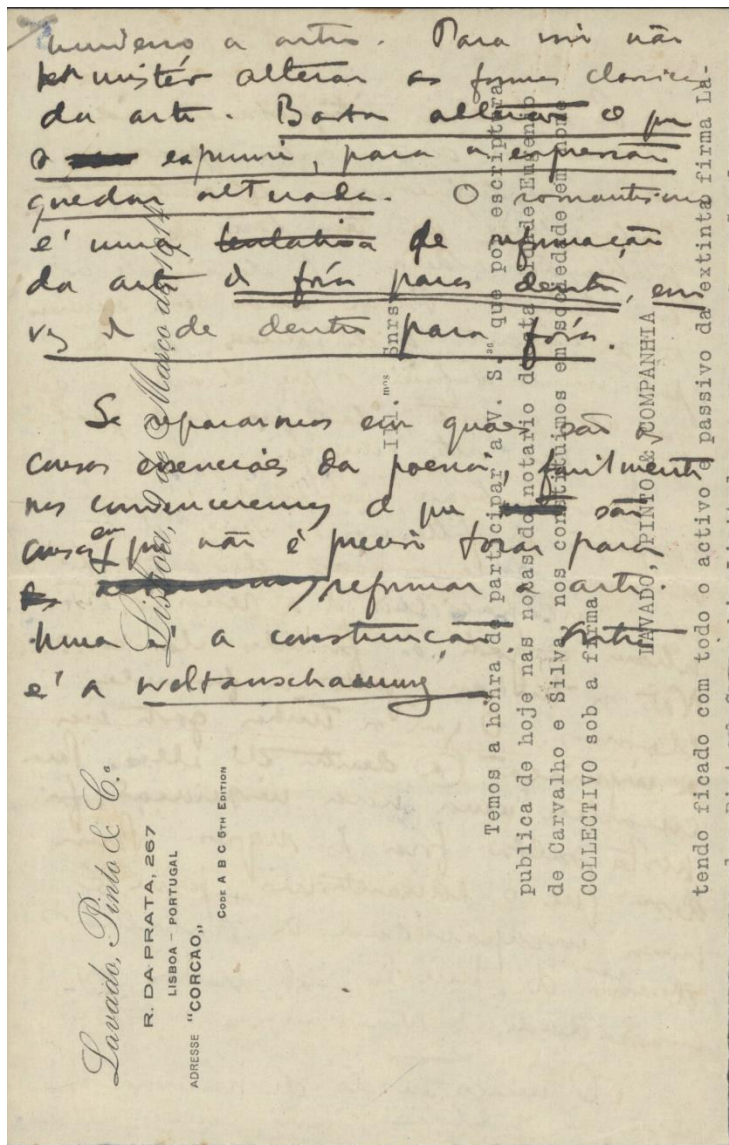 a artes. Para mim não
mistér alterar as formas classicas
da arte. Basta alterar o que
se exprime, para a expressão
quedar alterada. O romantismo
é uma tentativa de reformação
da arte de fóra para dentro, em
vez de de dentro para fóra.
Se repararmos em quaes são as
cousas essenciaes da poesia, facilmente
nos convenceremos de que são
cousas em que não é preciso tocar para
reformar a arte.
Uma é a construcção, outra
é a weltanschauung.
Lavado, Pinto & C.ª
R. DA PRATA, 267
LISBOA - PORTUGAL
ADRESSE "CORCAO„
CODE A B C 5TH EDITION
Lisboa, 9 de Março de 1914
Ill.mos Snrs
Temos a honra de participar a V. S.as que por escriptura
publica de hoje nas notas do notario d'esta cidade Eugenio
de Carvalho e Silva, nos constituimos em sociedade em nome
COLLECTIVO sob a firma
LAVADO, PINTO & COMPANHIA
tendo ficado com todo o activo e passivo da extinta firma La-